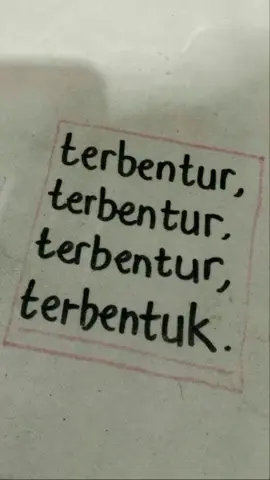 terbentur,
terbentur,
terbentur,
terbentuk.